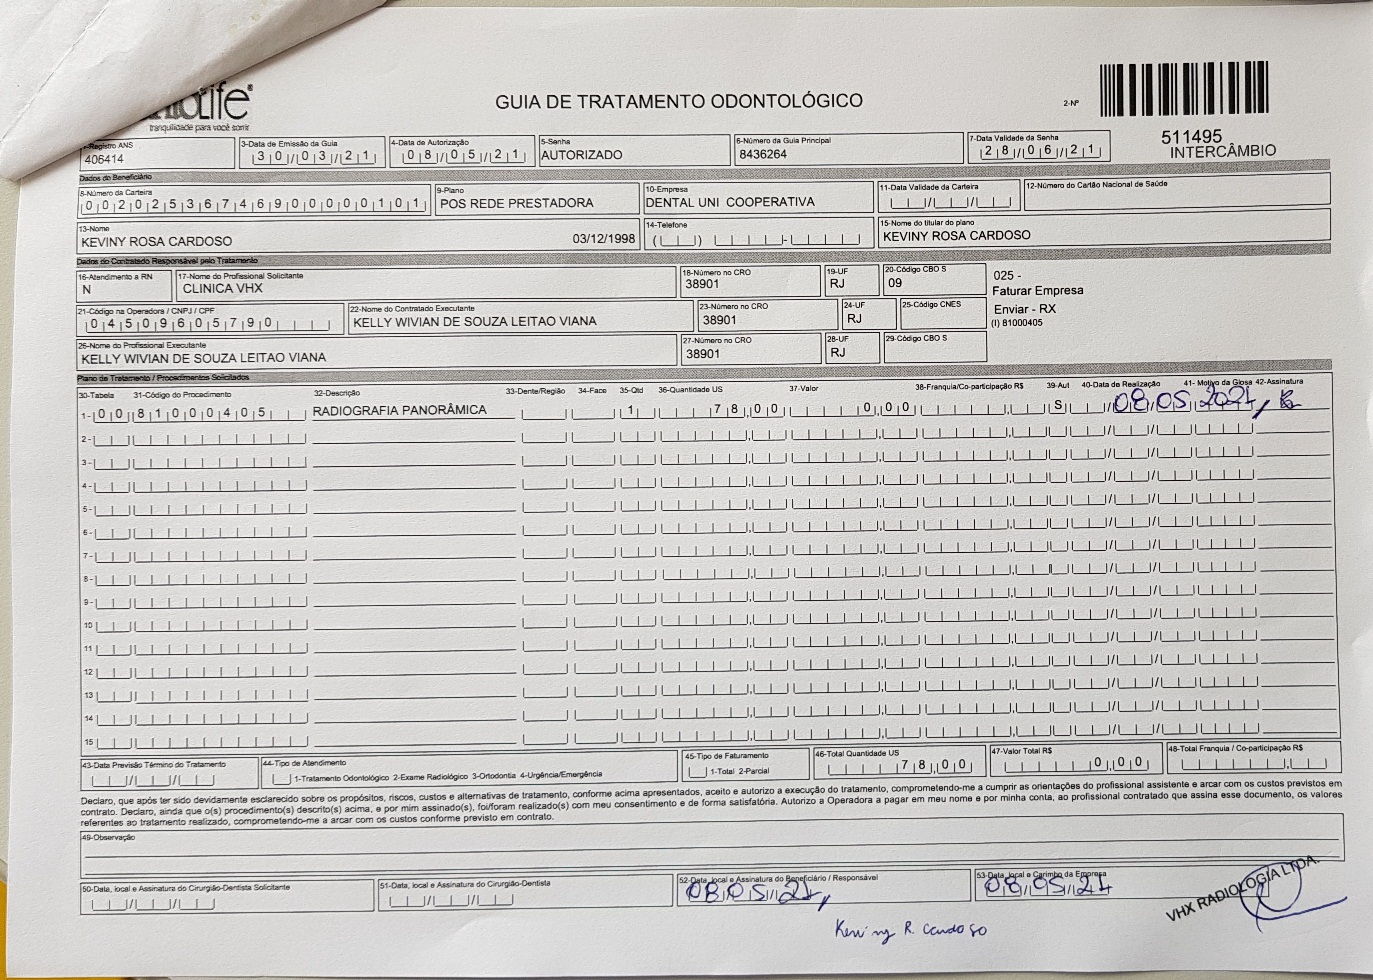 GUIA DE TRATAMENTO ODONTOLÓGICO
2-Nº
tranquilidade para você sorrir
511495
INTERCÂMBIO
1-Registro ANS 3-Data de Emissão da Guia 4-Data de Autorização 5-Senha 6-Número da Guia Principal 7-Data Validade da Senha
406414 30/03/21 08/05/21 AUTORIZADO 8436264 28/06/21
Dados do Beneficiário
8-Número da Carteira 9-Plano 10-Empresa 11-Data Validade da Carteira 12-Número do Cartão Nacional de Saúde
00202536746900000101 POS REDE PRESTADORA DENTAL UNI COOPERATIVA
13-Nome 14-Telefone 15-Nome do titular do plano
KEVINY ROSA CARDOSO 03/12/1998 KEVINY ROSA CARDOSO
Dados do Contratado Responsável pelo Tratamento
16-Atendimento a RN 17-Nome do Profissional Solicitante 18-Número no CRO 19-UF 20-Código CBO S
N CLINICA VHX 38901 RJ 09
025 -
Faturar Empresa
Enviar - RX
(I) 81000405
21-Código na Operadora / CNPJ / CPF 22-Nome do Contratado Executante 23-Número no CRO 24-UF 25-Código CNES
04509605790 KELLY WIVIAN DE SOUZA LEITAO VIANA 38901 RJ
26-Nome do Profissional Executante 27-Número no CRO 28-UF 29-Código CBO S
KELLY WIVIAN DE SOUZA LEITAO VIANA 38901 RJ
Plano de Tratamento / Procedimentos Solicitados
30-Tabela 31-Código do Procedimento 32-Descrição 33-Dente/Região 34-Face 35-Qtd 36-Quantidade US 37-Valor 38-Franquia/Co-participação R$ 39-Aut 40-Data de Realização 41- Motivo da Glosa 42-Assinatura
1- 00 81000405 RADIOGRAFIA PANORÂMICA 1 78,00 0,00 S 08/05/2021
2-
3-
4-
5-
6-
7-
8-
9-
10
11
12
13
14
15
43-Data Previsão Término do Tratamento 44-Tipo de Atendimento 45-Tipo de Faturamento 46-Total Quantidade US 47-Valor Total R$ 48-Total Franquia / Co-participação R$
1-Tratamento Odontológico 2-Exame Radiológico 3-Ortodontia 4-Urgência/Emergência 1-Total 2-Parcial 78,00 0,00
Declaro, que após ter sido devidamente esclarecido sobre os propósitos, riscos, custos e alternativas de tratamento, conforme acima apresentados, aceito e autorizo a execução do tratamento, comprometendo-me a cumprir as orientações do profissional assistente e arcar com os custos previstos em
contrato. Declaro, ainda que o(s) procedimento(s) descrito(s) acima, e por mim assinado(s), foi/foram realizado(s) com meu consentimento e de forma satisfatória. Autorizo a Operadora a pagar em meu nome e por minha conta, ao profissional contratado que assina esse documento, os valores
referentes ao tratamento realizado, comprometendo-me a arcar com os custos conforme previsto em contrato.
49-Observação
50-Data, local e Assinatura do Cirurgião-Dentista Solicitante 51-Data, local e Assinatura do Cirurgião-Dentista 52-Data, local e Assinatura do Beneficiário / Responsável 53-Data, local e Carimbo da Empresa
08/05/21 08/05/21
VHX RADIOLOGIA LTDA.
Keviny R. Cardoso